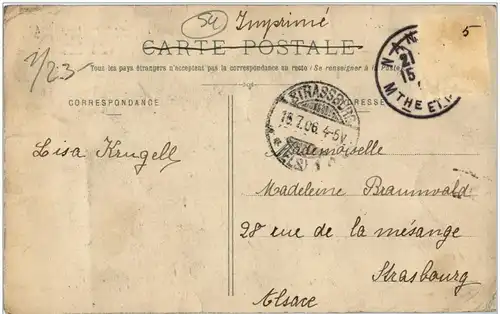 54
Imprimé
5
CARTE POSTALE
Tous les pays étrangers n'acceptent pas la correspondance au recto (Se renseigner à la Poste)
1/23
CORRESPONDANCE
STRASSBURG
16.7.06. 4-5V.
(ELS) 1
NAN
21
15
MTHE ET
Lisa Krugell
Mademoiselle
Madeleine Braunwald
28 rue de la mésange
Strasbourg
Alsace